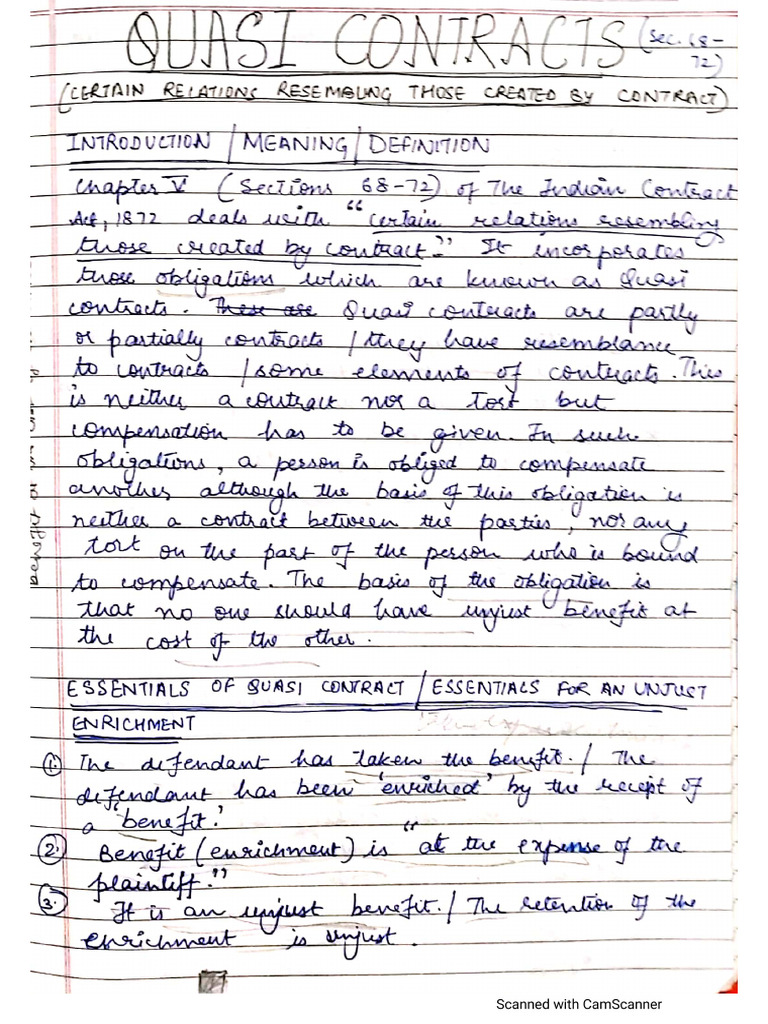 QUASI CONTRACTS (Sec. 68-
72)
(CERTAIN RELATIONS RESEMBLING THOSE CREATED BY CONTRACT)
INTRODUCTION / MEANING / DEFINITION
Chapter V (Sections 68-72) of The Indian Contract
Act, 1872 deals with "certain relations resembling
those created by contract." It incorporates
those obligations which are known as Quasi
contracts. These are Quasi contracts are partly
or partially contracts / they have resemblance
to contracts / some elements of contracts. This
is neither a contract nor a Tort but
compensation has to be given. In such
obligations, a person is obliged to compensate
another although the basis of this obligation is
neither a contract between the parties, nor any
tort on the part of the person who is bound
to compensate. The basis of the obligation is
that no one should have unjust benefit at
the cost of the other.
ESSENTIALS OF QUASI CONTRACT / ESSENTIALS FOR AN UNJUST
ENRICHMENT
1. The defendant has taken the benefit. / The
defendant has been 'enriched' by the receipt of
a 'benefit'.
2. Benefit (enrichment) is "at the expense of the
plaintiff."
3. It is an unjust benefit. / The retention of the
enrichment is unjust.
Scanned with CamScanner